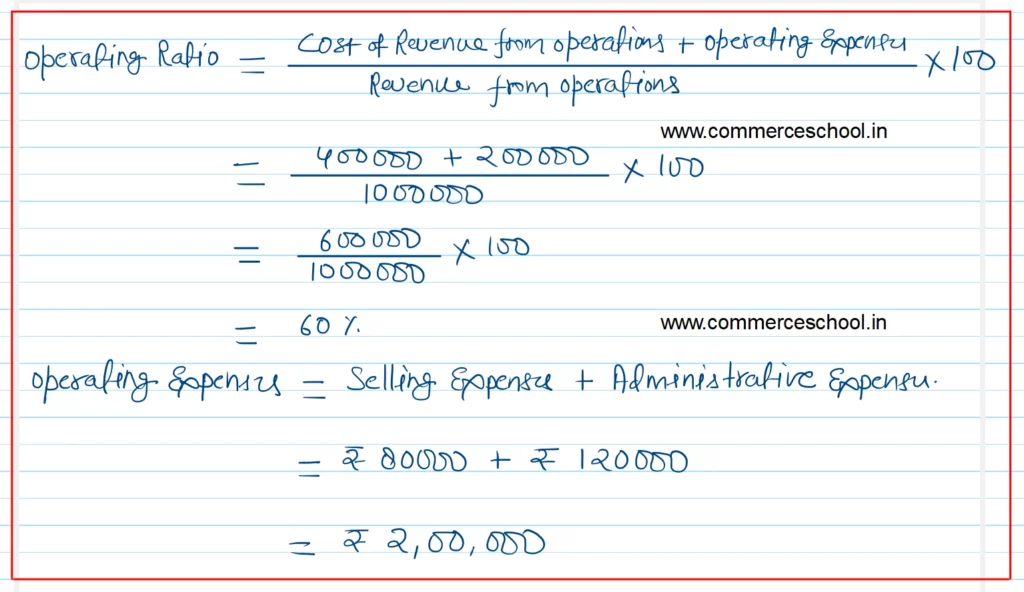 Operating Ratio = Cost of Revenue from operations + Operating Expenses
Revenue from operations × 100
www.commerceschool.in
= 400000 + 200000
1000000 × 100
= 600000
1000000 × 100
= 60 %.
www.commerceschool.in
Operating Expenses = Selling Expenses + Administrative Expenses.
= ₹ 80000 + ₹ 120000
= ₹ 2,00,000